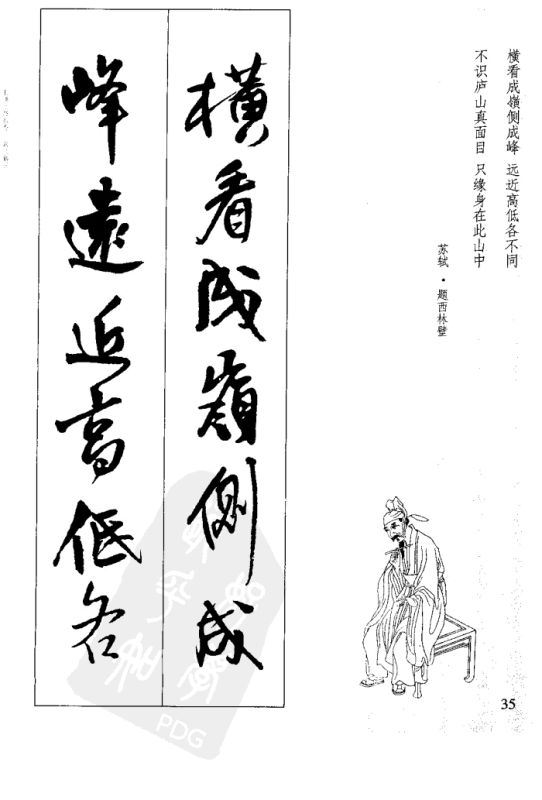 横看成嶺侧成峰 远近高低各不同
不识庐山真面目 只缘身在此山中
苏轼·题西林壁
橫看成嶺側成
峰遠近高低各
35
PDG